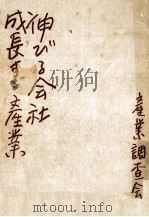 伸びる会社
成長する産業
産業調査会